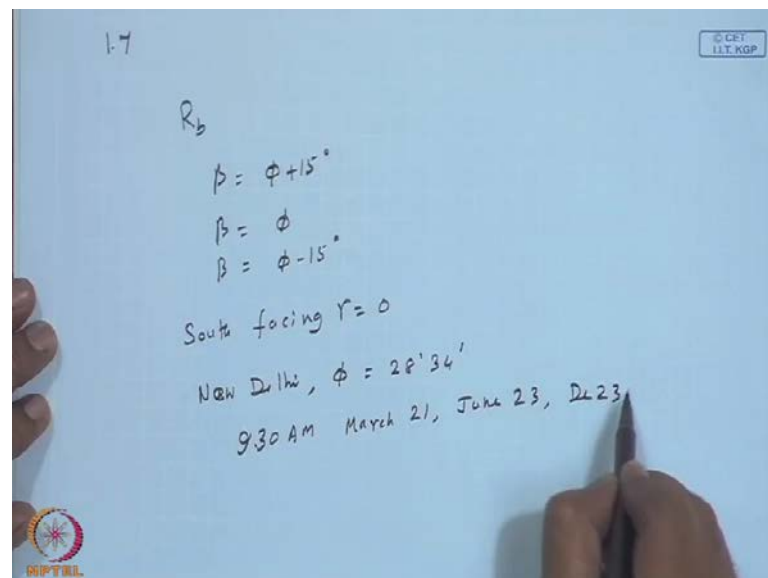 1.7
© CET
I.I.T. KGP
R_b
β = φ+15°
β = φ
β = φ-15°
South facing γ = 0
New Delhi, φ = 28'34'
9.30 AM March 21, June 23, De 23
NPTEL